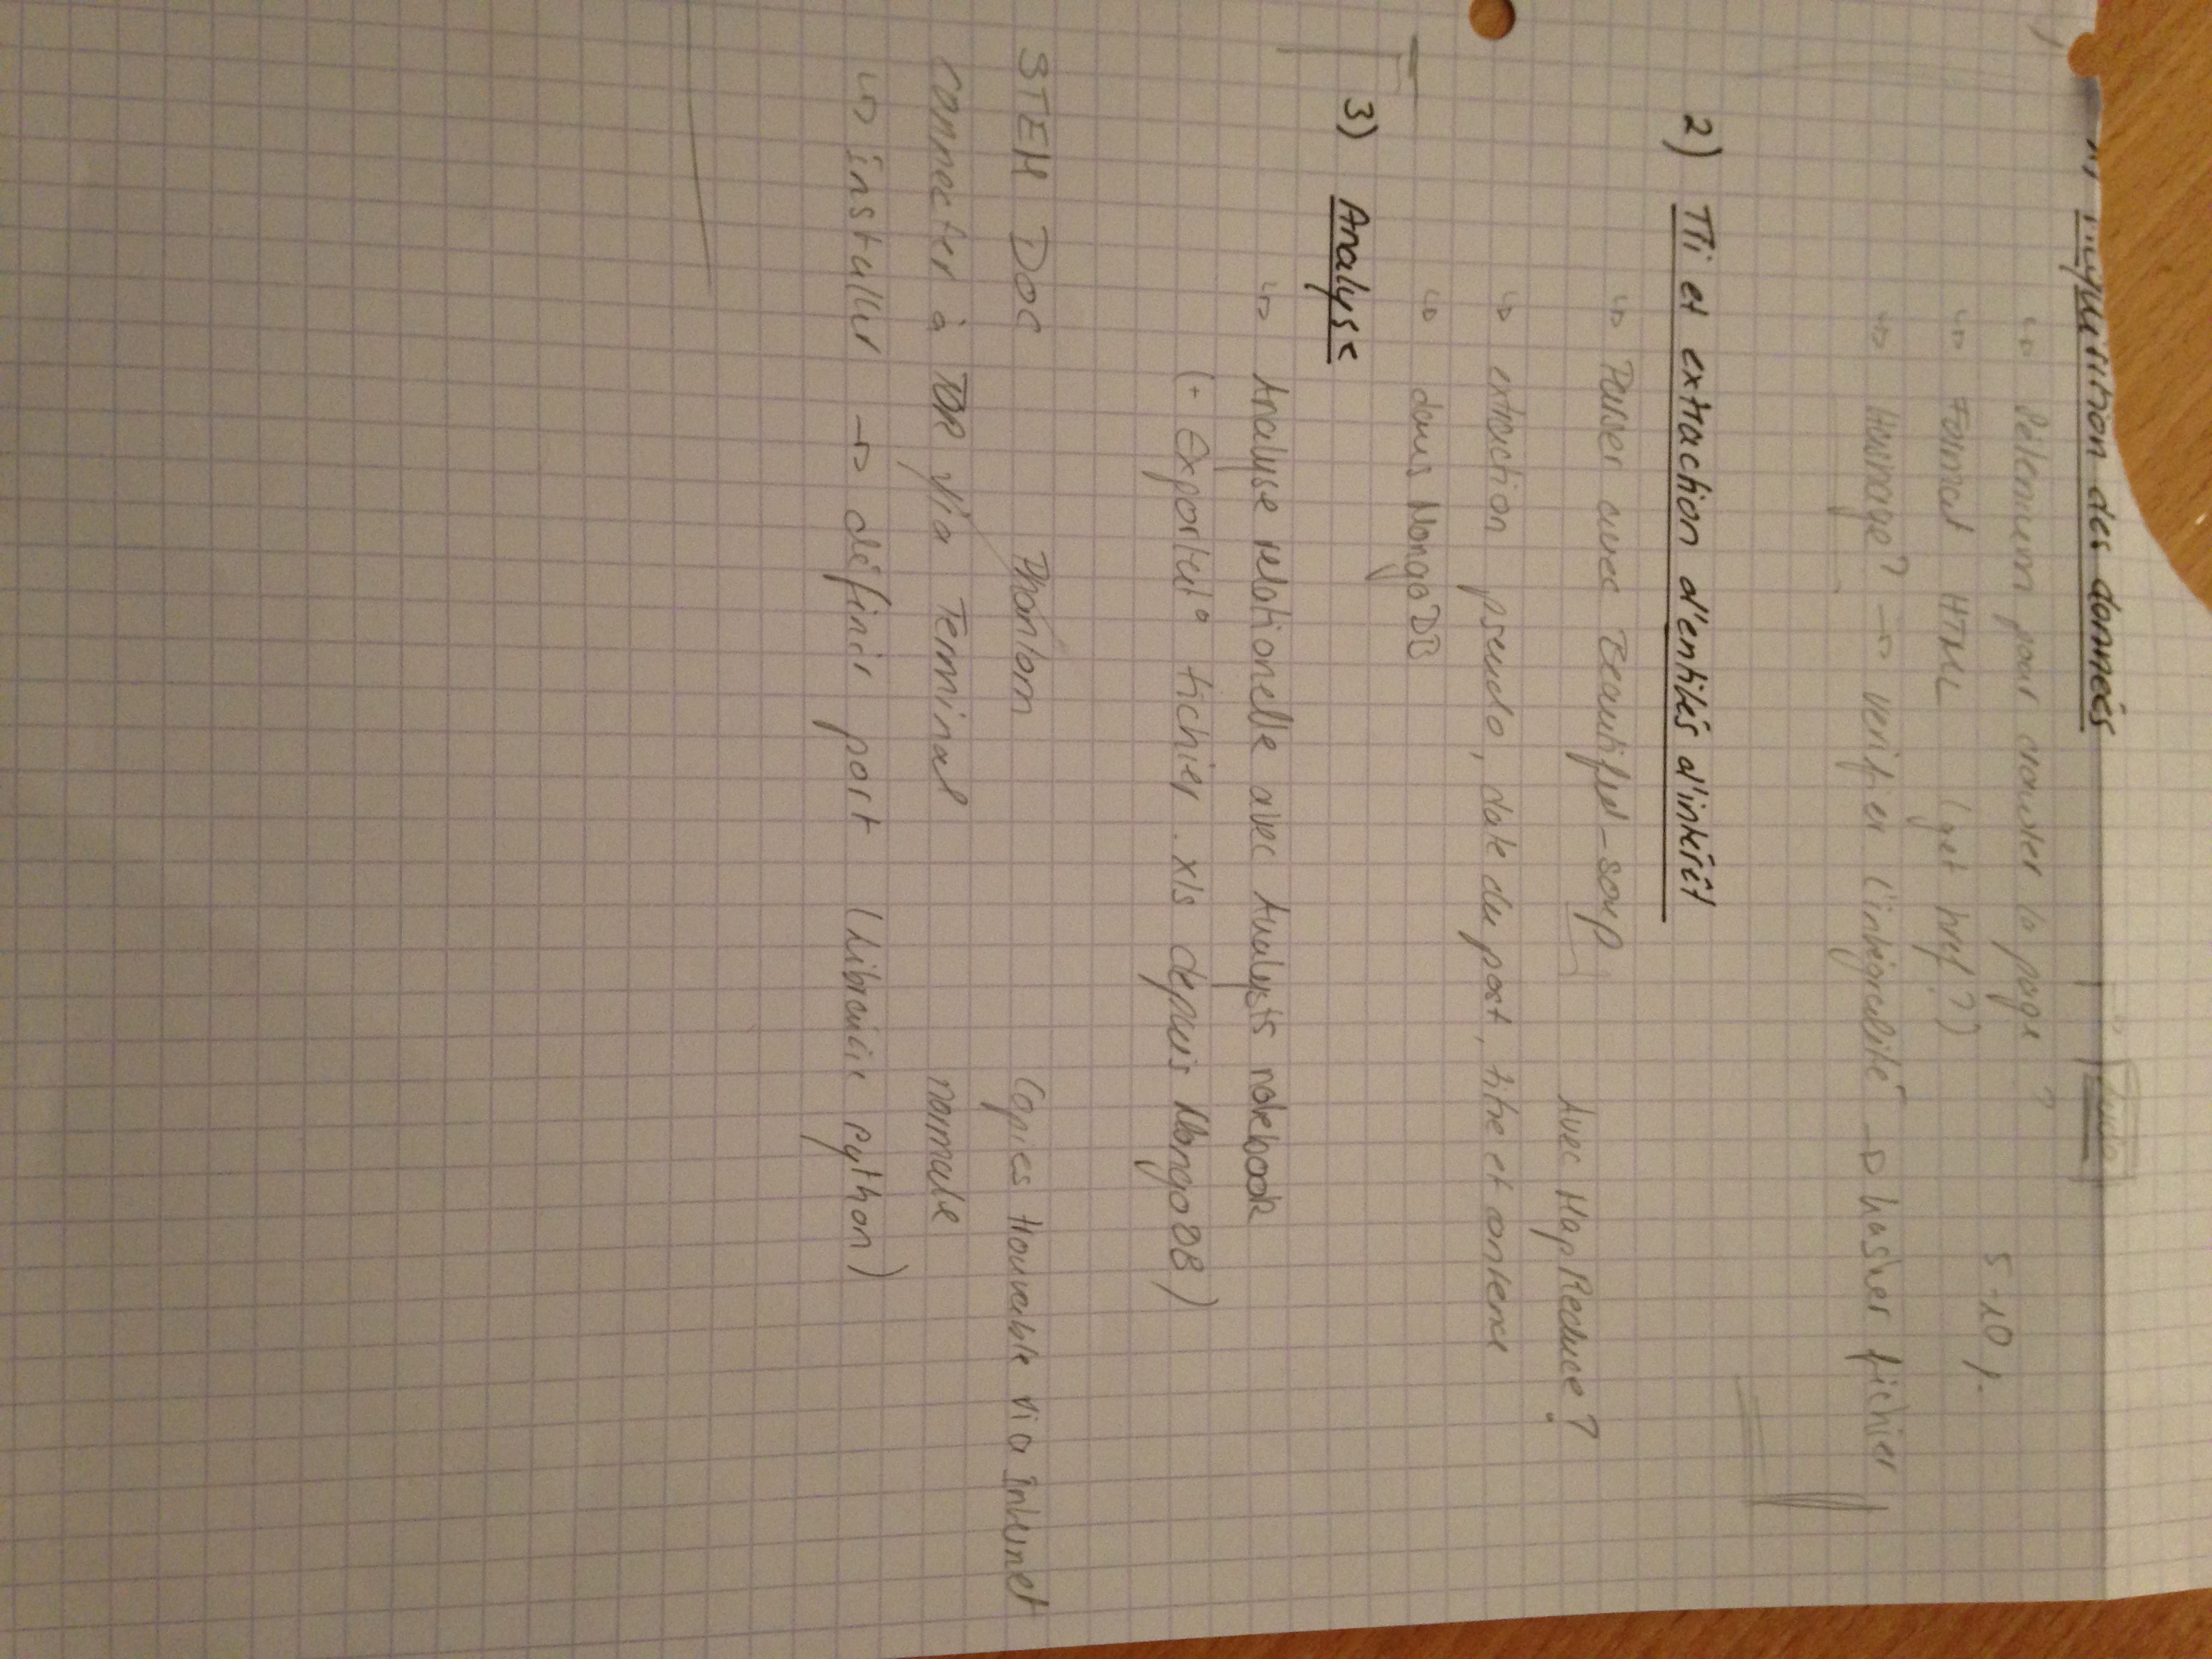 1) Acquisition des données
↳ Sélénium pour crawler la page ?
↳ Format HTML (get href?) 5-10 %
↳ Hashage? → vérifier l'intégralité → hasher fichier
2) Tri et extraction d'entités d'intérêt
↳ Parser avec Beautiful-soup Avec MapReduce?
↳ extraction pseudo, date du post, titre et contenu
↳ dans MongoDB
3) Analyse
↳ Analyse relationelle avec Analysts notebook
(+ Exportat° fichier .xls depuis MongoDB)
STEM DOC Phantom Copies trouvable via internet
connecter à TOR via Terminal normale
↳ installer → définir port (Librairie python)